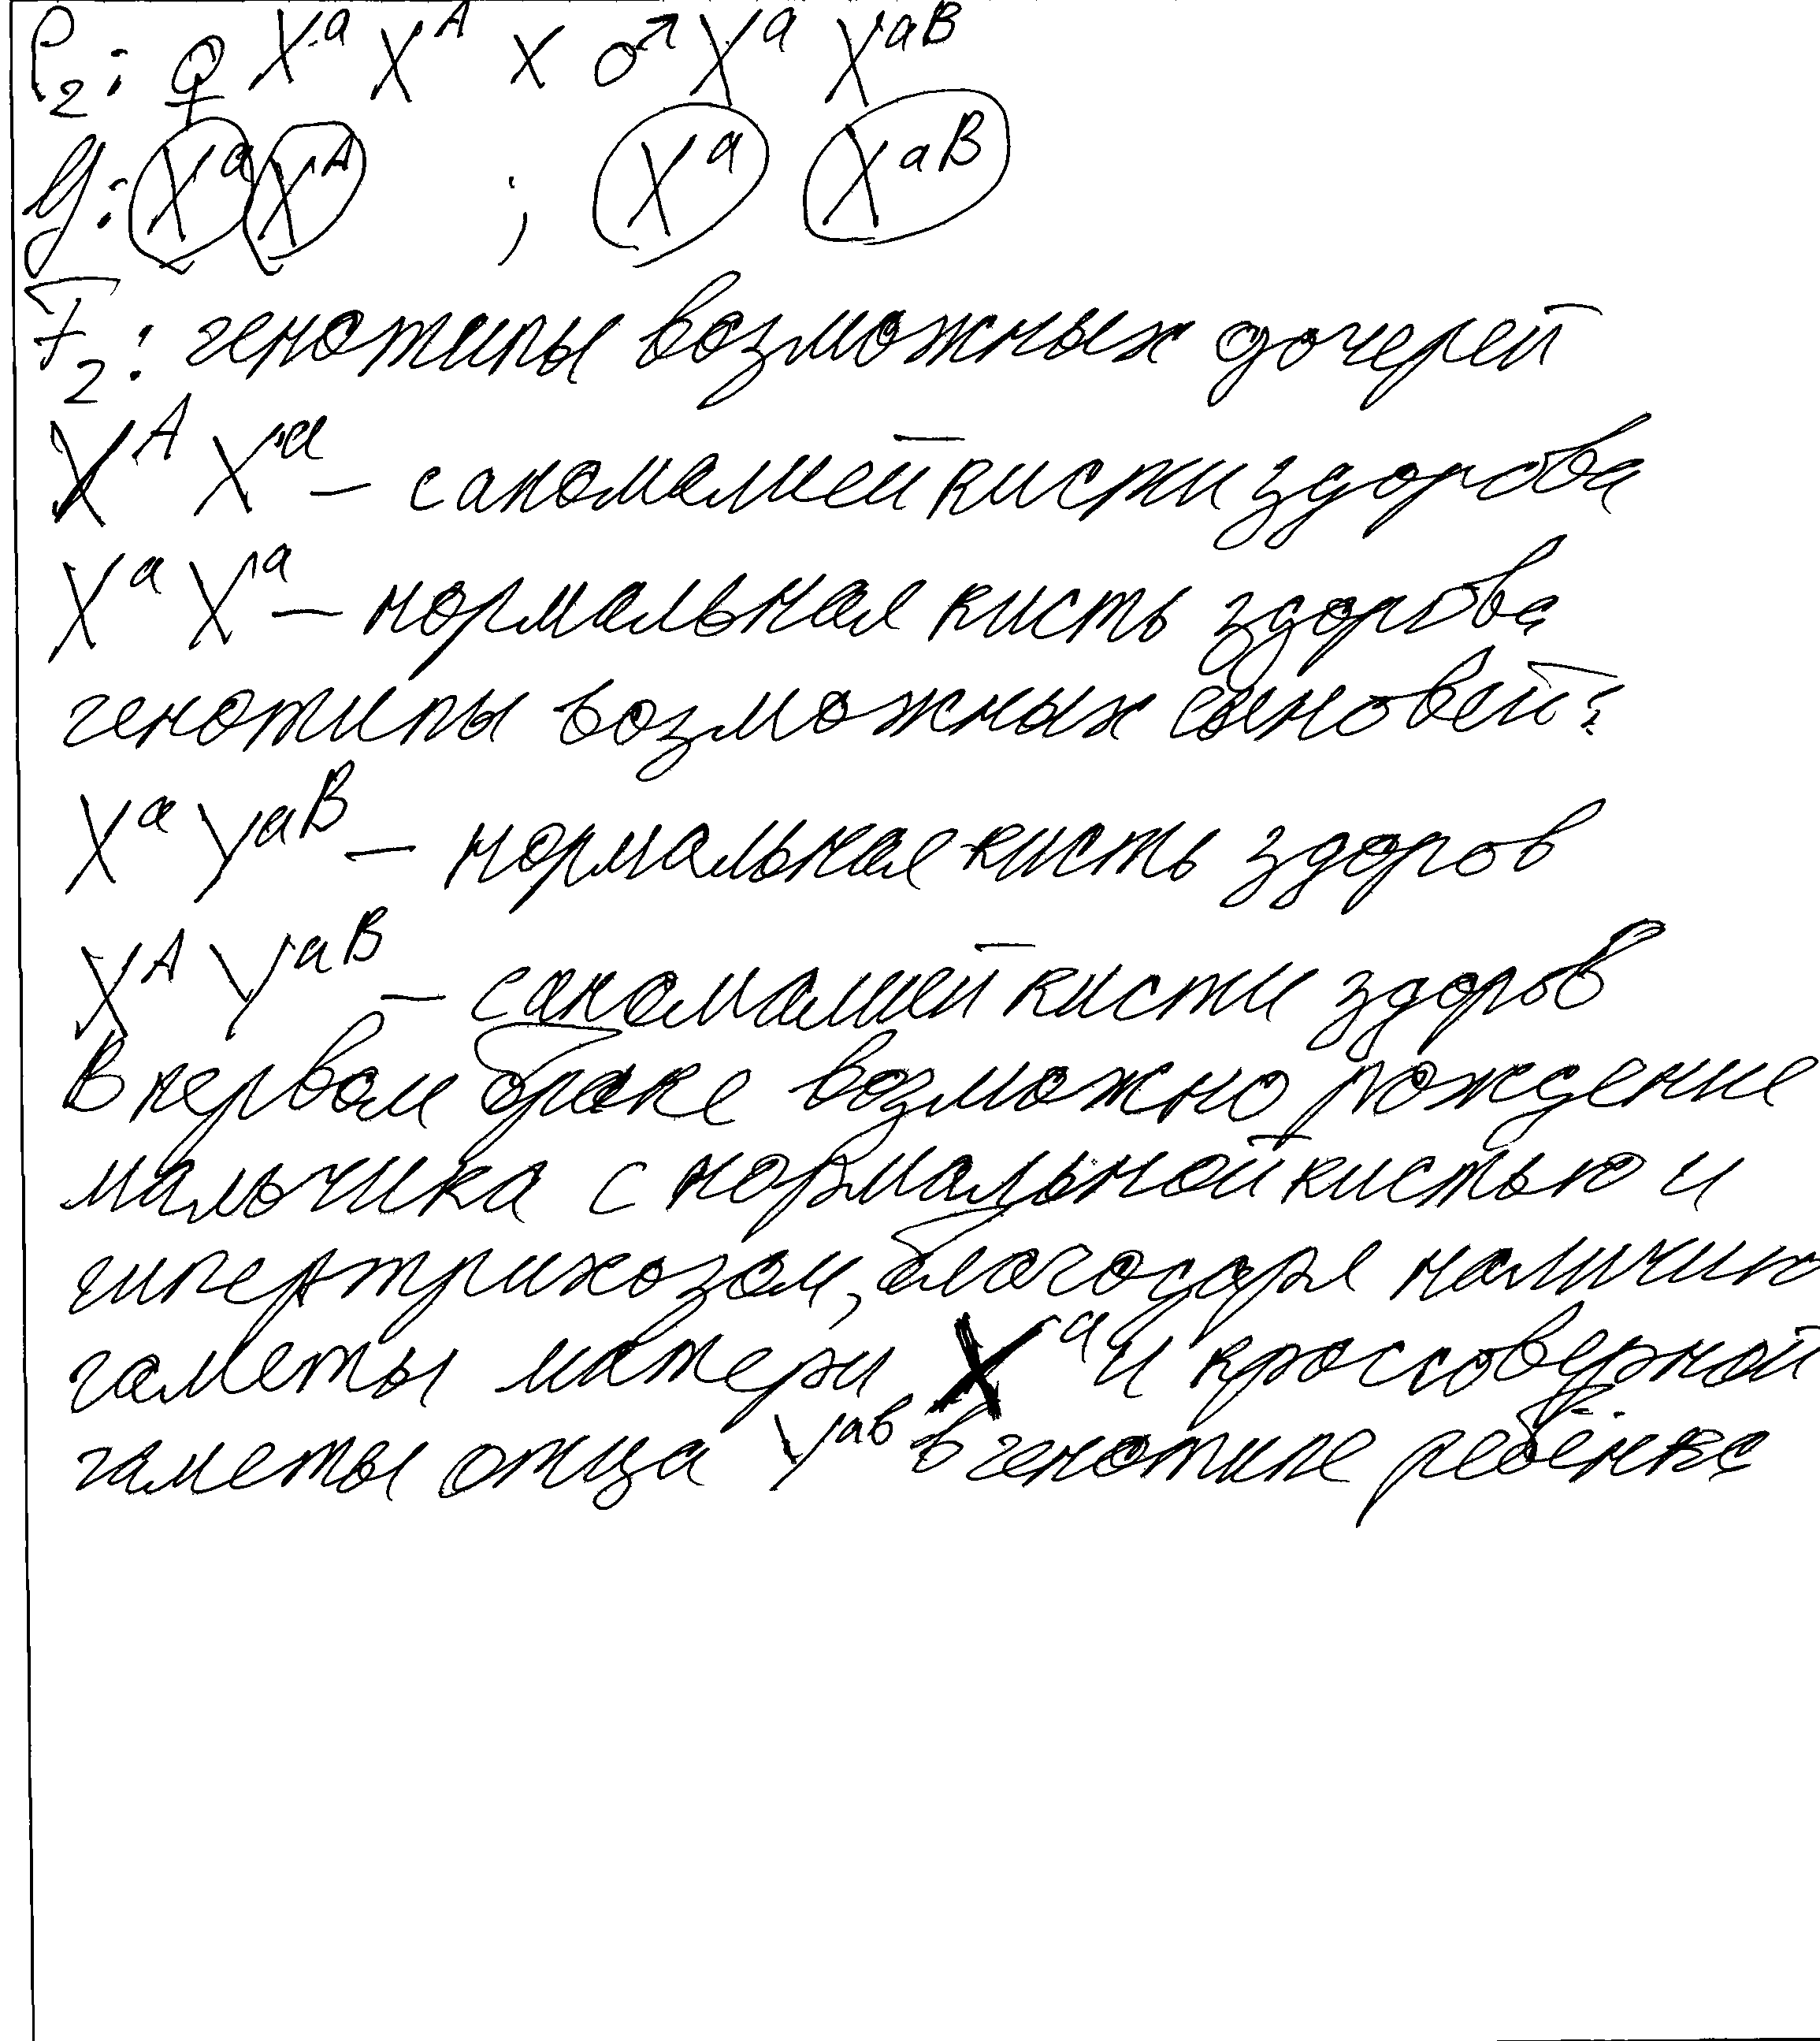 P₂: ♀ Xᵃ Xᴬ x ♂ Xᵃ Xᵃᴮ
g: Xᵃ Xᴬ ; Xᵃ Xᵃᴮ
F₂: генотипы возможных дочерей
Xᴬ Xᵃ – с аномалией кисти здорова
Xᵃ Xᵃ – нормальная кисть здорова
генотипы возможных сыновей:
Xᵃ Yᵃᴮ – нормальная кисть здоров
Xᴬ Yᵃᴮ – с аномалией кисти здоров
В первом браке возможно рождение
мальчика с нормальной кистью и
гипертрихозом, благодаря наличию
гаметы матери Xᵃ и кроссоверной
гаметы отца Yᵃᵇ в генотипе ребёнка